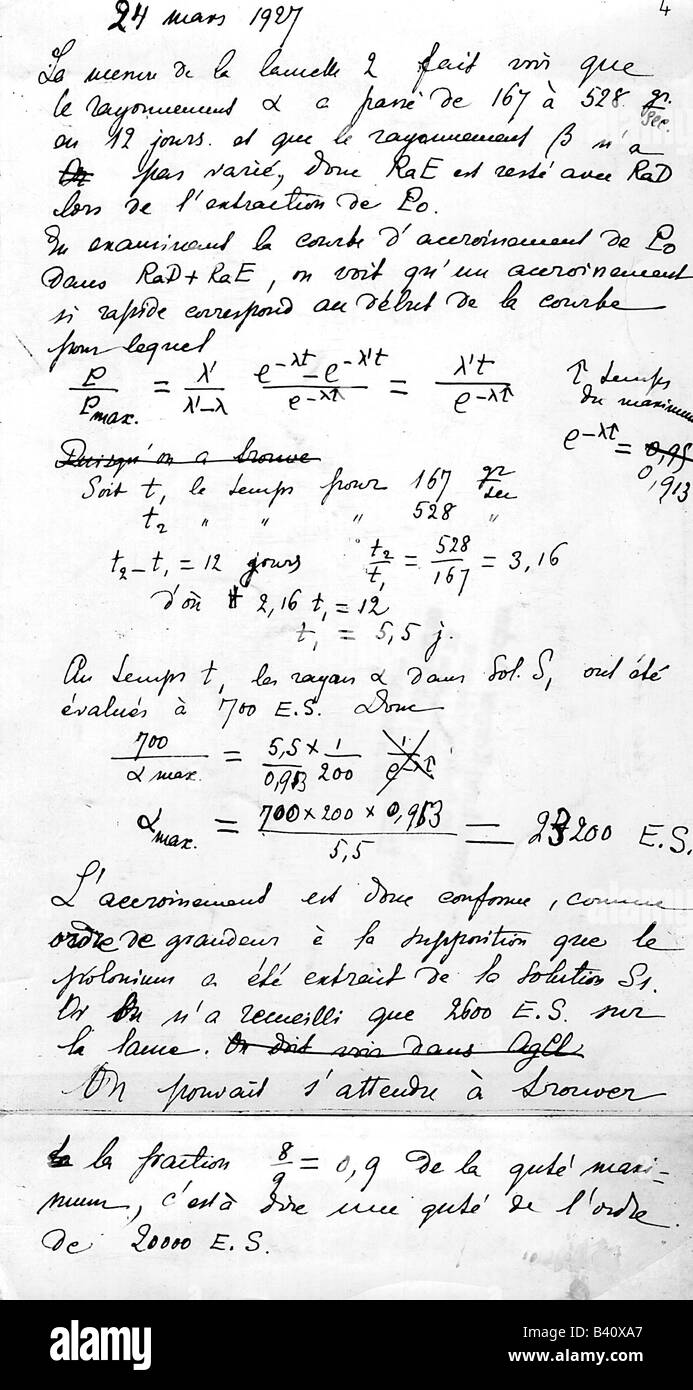 24 mars 1927
4
La mesure de la lamelle 2 fait voir que
le rayonnement α a passé de 167 à 528 gr./sec.
en 12 jours. et que le rayonnement β n'a
pas varié, donc RaE est resté avec RaD
lors de l'extraction de Po.
En examinant la courbe d'accroissement de Po
dans RaD + RaE, on voit qu'un accroissement
si rapide correspond au début de la courbe
pour lequel
P/Pmax. = λ'/(λ'-λ) (e^-λt - e^-λ't)/e^-λτ = λ't/e^-λτ
τ temps
du maximum
e^-λτ = 0,95
0,913
Puisqu'on a trouvé
Soit t₁ le temps pour 167 gr/sec
t₂ " " " 528 "
t₂ - t₁ = 12 jours t₂/t₁ = 528/167 = 3,16
d'où 2,16 t₁ = 12
t₁ = 5,5 j.
Au temps t₁ les rayons α dans Sol. S₁ ont été
évalués à 700 E.S. Donc
700/α max. = 5,5/0,913 × 1/200 1/e^-λτ
α max. = (700 × 200 × 0,913)/5,5 = 23200 E.S.
L'accroissement est donc conforme, comme
ordre de grandeur à la supposition que le
polonium a été extrait de la solution S₁.
Or on n'a recueilli que 2600 E.S. sur
la lame. On doit voir dans AgCl
On pouvait s'attendre à trouver
la fraction 8/9 = 0,9 de la quté maxi=
mum, c'est à dire une quté de l'ordre
de 20000 E.S.
alamy
Image ID: B40XA7
www.alamy.com